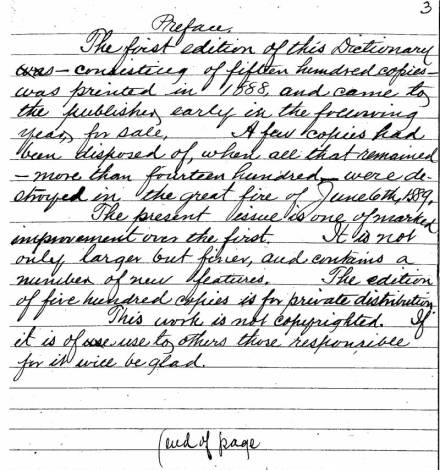 3
Preface.
The first edition of this Dictionary
was - consisting of fifteen hundred copies -
was printed in 1888, and came to
the publisher, early in the following
year, for sale. A few copies had
been disposed of, when all that remained
- more than fourteen hundred - were de-
stroyed in the great fire of June 6th, 1889.
The present issue is one of marked
improvement over the first. It is not
only larger but finer, and contains a
number of new features. The edition
of five hundred copies is for private distribution.
This work is not copyrighted. If
it is of use use to others those responsible
for it will be glad.
(end of page